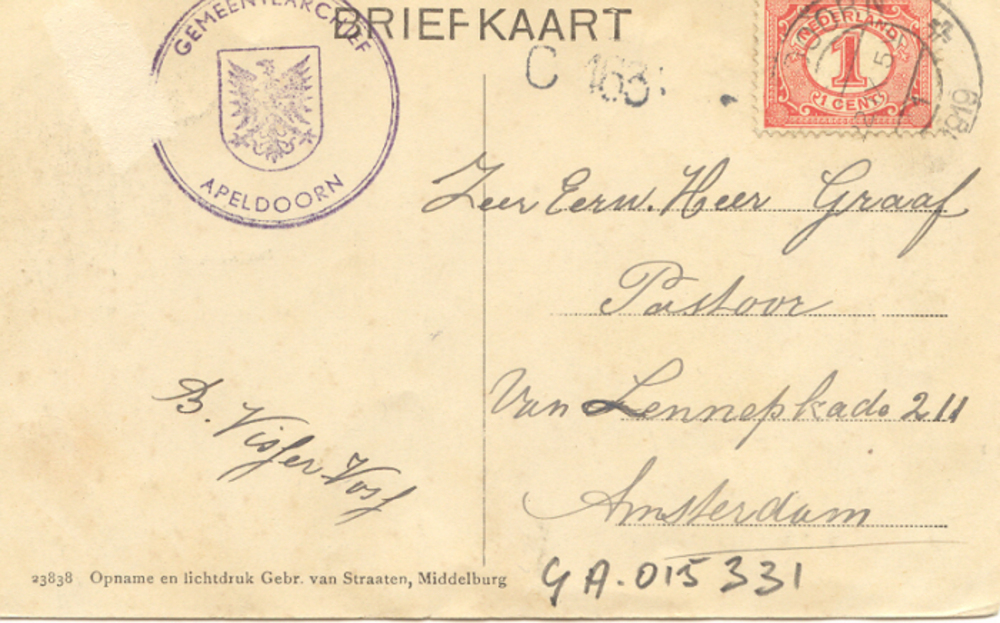 BRIEFKAART
GEMEENTEARCHIEF
APELDOORN
C 163
NEDERLAND
1
1 CENT
Zeer Eerw. Heer Graaf
Pastoor
Van Lennepkade 211
Amsterdam
B. Visser Vosf
23838 Opname en lichtdruk Gebr. van Straaten, Middelburg
GA. 015331